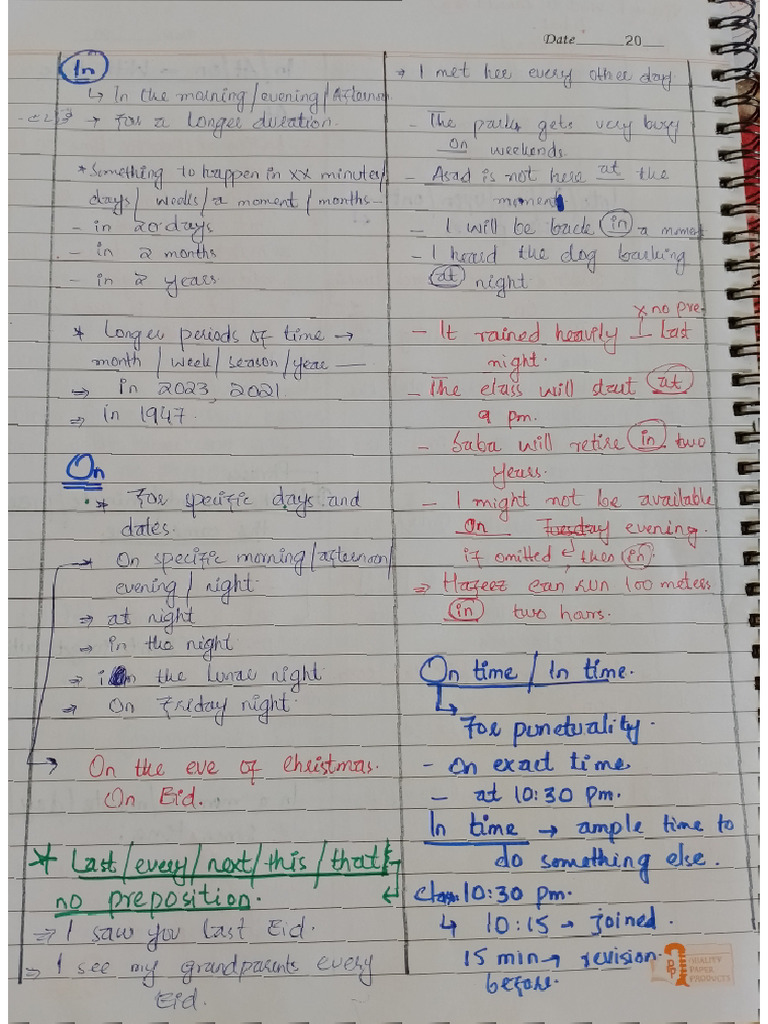 Date 20
In
↳ In the morning/evening/Afternoon
→ For a Longer duration.
* Something to happen in xx minutes/
days/ weeks/a moment/months-
- in 20 days
- in 2 months
- in 2 years
* Longer periods of time →
month / week / season / year —
⇒ in 2023, 2021.
⇒ in 1947.
On
* For specific days and
dates.
→ On specific morning/afternoon/
evening / night
⇒ at night
→ in the night
⇒ in the lunar night
→ On Friday night.
→ On the eve of Christmas.
On Eid.
* Last/every/next/this/that
no preposition.
⇒ I saw you last Eid.
⇒ I see my grandparents every
Eid.
→ I met her every other day
- The park gets very busy
on weekends.
- Asad is not here at the
moment
- I will be back in a moment
- I heard the dog barking
at night
x no pre-
- It rained heavily Last
night.
- The class will start at
9 pm.
- Saba will retire in two
years.
- I might not be available
on Tuesday evening.
if omitted, then in.
⇒ Hafeez can run 100 meters
in two hours.
On time / In time.
↳ For punctuality.
- On exact time
- at 10:30 pm.
In time → ample time to
do something else.
Class 10:30 pm.
↳ 10:15 → joined.
15 min → revision
before.
QUALITY
PAPER
PRODUCTS